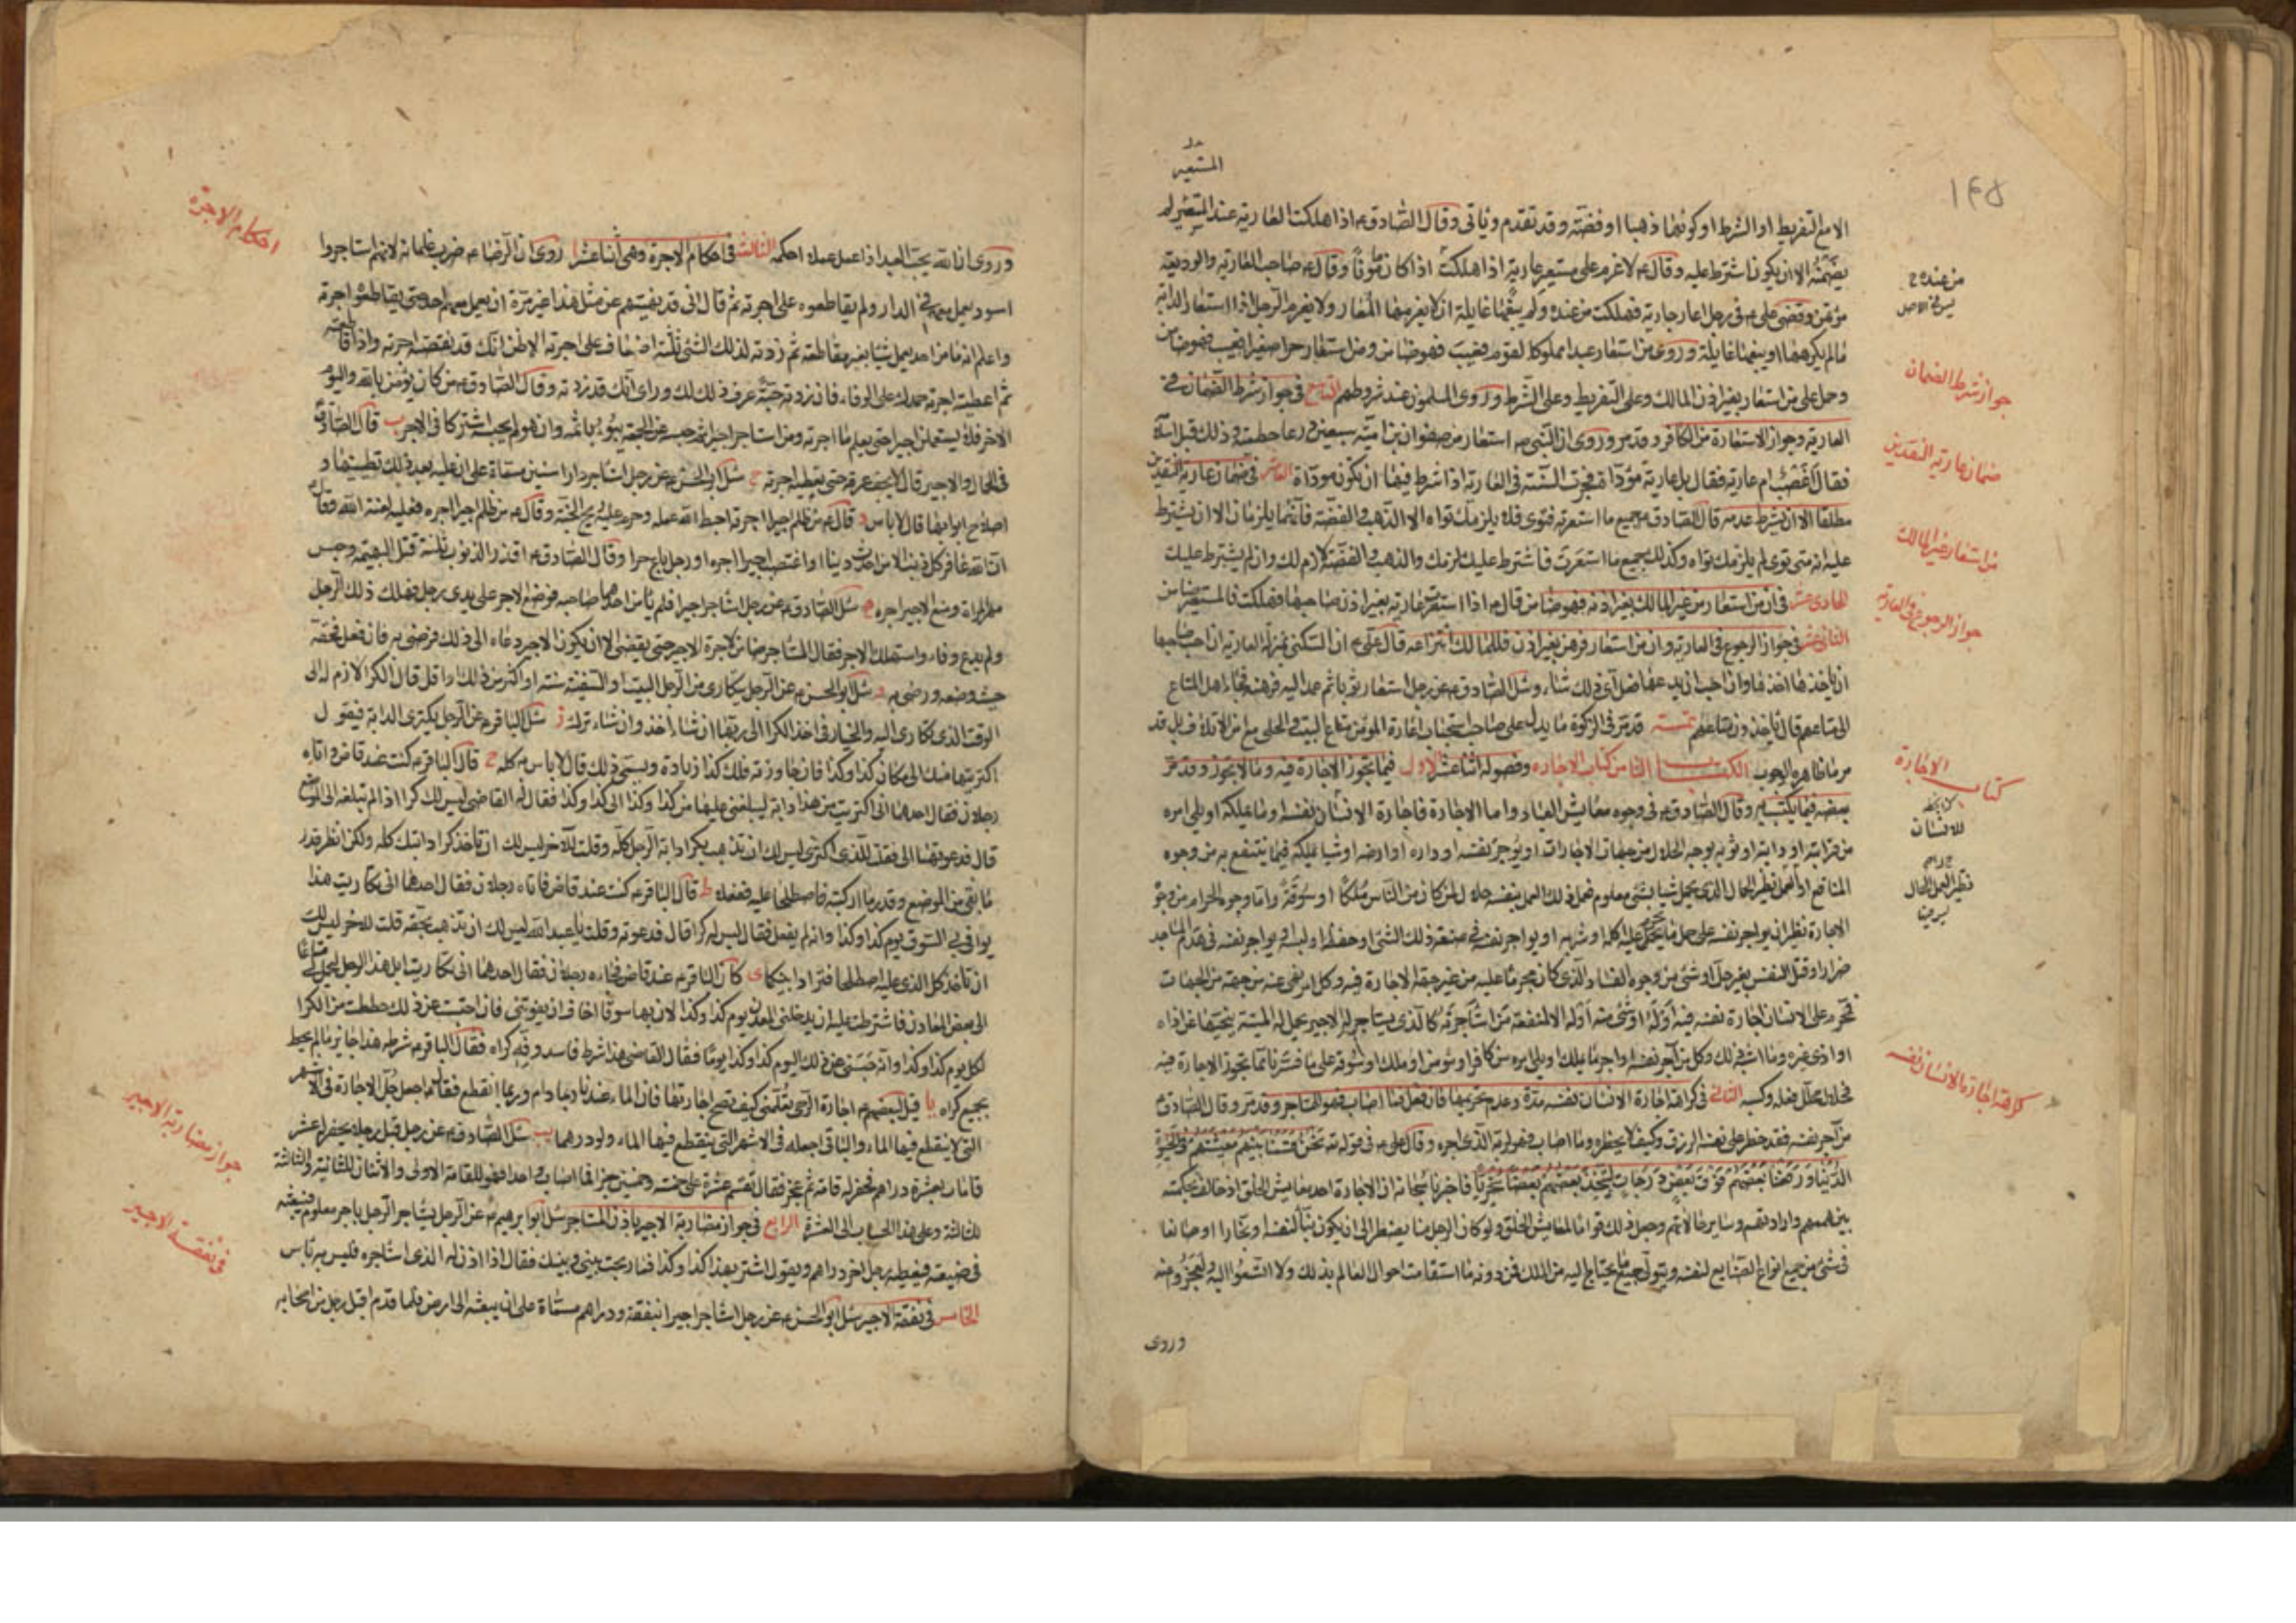 ١٤٥
المستعير
الا مع التفريط او الشرط او كونها ذهبا او فضة وقد تقدم وياتى وقال الصادق ع اذا هلكت العارية عند المستعير لم
يضمنه الا ان يكون اشترط عليه وقال ع لا غرم على مستعير عارية اذا هلكت اذا كان مامونا وقال ع صاحب العارية والوديعة
مؤتمن وقضى على ع فى رجل اعار جارية فهلكت من عنده ولم يبغها غايلة ان لا يغرمها المعار ولا يغرم الرجل اذا استعار الدابة
مالم يكرهها او يبغها غايلة وروى من استعار عبدا مملوكا لقوم فعيب فهو ضامن ومن استعار حرا صغيرا فعيب فهو ضامن
وحمل على من استعار بغير اذن المالك وعلى التفريط وعلى الشرط وروى المسلمون عند شروطهم التاسع فى جواز شرط الضمان فى
العارية وجواز الاستعارة من الكافر وقد مر وروى ان النبى ص استعار من صفوان بن امية سبعين درعا حطمية وذلك قبل اسلامه
فقال اغصب ام عارية فقال بل عارية مؤداة فجرت السنة فى العارية اذا شرط فيها ان تكون موداة العاشر فى ضمان عارية النقدين
مطلقا الا ان يشرط عدمه قال الصادق ع جميع ما استعرته فتوى فلا يلزمك تواه الا الذهب والفضة فانهما يلزمان الا ان يشترط
عليه انه متى توى لم يلزمك تواه وكذلك جميع ما استعرت فاشترط عليك لزمك والذهب والفضة لازم لك وان لم يشترط عليك
الحادى عشر فى ان من استعار من غير المالك بغير اذنه فهو ضامن قال ع اذا استعرت عارية بغير اذن صاحبها فهلكت فالمستعير ضامن
الثانى عشر فى جواز الرجوع فى العارية وان من استعار فرهن بغير اذن فللمالك انتزاعه قال على ع ان السكنى بمنزلة العارية ان احب صاحبها
ان ياخذها اخذها وان احب ان يدعها فعل اى ذلك شاء وسئل الصادق ع عن رجل استعار ثوبا ثم عمد اليه فرهنه فجاء اهل المتاع
الى متاعهم قال ياخذون متاعهم تتمة قد مر فى الزكوة ما يدل على استحباب اعارة المؤمن متاع البيت والحلى مع امن الاتلاف بل قد
مر ما ظاهره الوجوب الكتاب الثامن كتاب الاجارة وفصوله اثنا عشر الاول فيما تجوز الاجارة فيه وما لا يجوز وقد مر
بعضه فيما يكتسب به وقال الصادق ع فى وجوه معايش العباد واما الاجارة فاجارة الانسان نفسه او ما يملكه او يلى امره
من قرابته او دابته او ثوبه بوجه الحلال من جهات الاجارات او يوجر نفسه او داره او ارضه او شيا يملكه فيما ينتفع به من وجوه
المنافع او العمل نظير الحمال الذى يحمل شيا بشئ معلوم
الاجارة نظير ان يواجر نفسه على حمل ما يحرم عليه اكله او شربه او يواجر نفسه فى صنعة ذلك الشئ او حفظه او لبسه او يواجر نفسه فى هدم المساجد
ضرارا او قتل النفس بغير حل او شئ من وجوه الفساد الذى كان محرما عليه من غير جهة الاجارة فيه وكل امر نهى عنه من جهة من الجهات
محرم على الانسان اجارة نفسه فيه او له او شئ منه او له الا لمنفعة من استاجرته كالذى يستاجر له الاجير يحمل له الميتة ينحيها عن اذاه
او اذى غيره وما اشبه ذلك وكل من آجر نفسه او اجر ما يملك او يلى امره من كافر او مؤمن او ملك او سوقة على ما فسرنا مما تجوز الاجارة فيه
فحلال محلل فعله وكسبه الثانى فى كراهة اجارة الانسان نفسه مدة وعدم تحريمها فان فعل فما اصاب فهو للمستاجر وقد مر وقال الصادق ع
من آجر نفسه فقد حظر على نفسه الرزق وكيف لا يحظره وما اصاب فهو لربه الذى اجره وقال على ع فى قوله تع نحن قسمنا بينهم معيشتهم فى الحيوة
الدنيا ورفعنا بعضهم فوق بعض درجات ليتخذ بعضهم بعضا سخريا فاخبرنا سبحانه ان الاجارة احد معايش الخلق اذ خالف بحكمته
بين هممهم وارادتهم وساير حالاتهم وجعل ذلك قواما لمعايش الخلق ولو كان الرجل منا يضطر الى ان يكون بناء لنفسه او نجارا او صانعا
فى شئ من جميع انواع الصنايع لنفسه ويتولى جميع ما يحتاج اليه من الملك فمن دونه ما استقامت احوال العالم بذلك ولا اتسعوا اليه ولعجزوا عنه
وروى
من عنده
ليس فى الاصل
جواز شرط الضمان
ضمان عارية النقدين
من استعار من غير المالك
جواز الرجوع فى العارية
كتاب الاجارة
للانسان
نظير العمل الحمال
كراهة اجارة الانسان نفسه
وروى ان الله يحب العبد اذا عمل عملا احكمه الثالث فى احكام الاجرة وهى اثنا عشر ا روى ان الرضا ع ضرب غلمانه لانهم استاجروا
اسود يعمل معهم فى الدار ولم يقاطعوه على اجرته ثم قال انى قد نهيتهم عن مثل هذا غير مرة ان يعمل معهم احد حتى يقاطعوه اجرته
واعلم انه ما من احد يعمل شيا بغير مقاطعة ثم زدته لذلك الشئ ثلثة اضعاف على اجرته الا ظن انك قد نقصته اجرته واذا قاطعته
ثم اعطيته اجرته حمدك على الوفاء فان زدته حبة عرف ذلك لك وراى انك قد زدته وقال الصادق ع من كان يؤمن بالله واليوم
الاخر فلا يستعملن اجيرا حتى يعلم ما اجرته ومن استاجر اجيرا ثم حبسه عن الجمعة يبوء باثمه وان هو لم يحبسه اشتركا فى الاجر ب قال الصادق ع
فى الحمال والاجير قال لا يجف عرقه حتى يعطيه اجرته ج سئل ابو الحسن ع عن رجل استاجر دارا سنين مسماة على ان عليه بعد ذلك تطيينها و
اصلاح ابوابها قال لا باس د قال ع من ظلم اجيرا اجرته احبط الله عمله وحرم عليه ريح الجنة وقال ع من ظلم اجيرا اجره فعليه لعنة الله وقال ع
ان الله غافر كل ذنب الا من احدث دينا او اغتصب اجيرا اجره او رجل باع حرا وقال الصادق ع اقذر الذنوب ثلثة قتل البهيمة وحبس
مهر المراة ومنع الاجير اجره ه سئل الصادق ع عن رجل استاجر اجيرا فلم يامن احدهما صاحبه فوضع الاجر على يدى رجل فهلك ذلك الرجل
ولم يدع وفاء واستهلك الاجر فقال المستاجر ضامن لاجرة الاجير حتى يقضى الا ان يكون الاجير دعاه الى ذلك فرضى به فان فعل فحقه
حيث وضعه ورضى به و سئل ابو الحسن ع عن الرجل يتكارى من الرجل البيت او السفينة سنة او اكثر من ذلك او اقل قال الكرا لازم له الى
الوقت الذى تكارى اليه والخيار فى اخذ الكرا الى ربها ان شاء اخذ وان شاء ترك ز سئل الباقر ع عن الرجل يكترى الدابة فيقول
اكتريتها منك الى مكان كذا وكذا فان جاوزته فلك كذا زيادة ويسمى ذلك قال لا باس به كله ح قال الباقر ع كنت عند قاض واتاه
رجلان فقال احدهما انى اكتريت من هذا دابة ليبلغنى عليها من كذا وكذا الى كذا وكذا فقال له القاضى ليس لك كرا اذا لم تبلغه الى الموضع
قال فدعوتهما الى فقلت للذى اكترى ليس لك ان تذهب بكرا دابة الرجل كله وقلت للآخر ليس لك ان تاخذ كرا دابتك كله ولكن انظر قدر
ما بقى من الموضع وقدر ما اركبته فاصطلحا عليه ففعلا ط قال الباقر ع كنت عند قاض فاتاه رجلان فقال احدهما انى تكاريت هذا
يوافى بى السوق يوم كذا وكذا وانه لم يفعل فقال ليس له كرا قال فدعوته وقلت يا عبد الله ليس لك ان تذهب بحقه قلت للاخر ليس لك
ان تاخذ كل الذى عليه اصطلحا فترادا بينكما ى كان الباقر ع عند قاض فجاءه رجلان فقال احدهما انى تكاريت ابل هذا الرجل ليحمل لى متاعا
الى بعض المعادن فاشترطت عليه ان يدخلنى المعدن يوم كذا وكذا لان بها سوقا اخاف ان يفوتنى فان احتبست عن ذلك حططت من الكرا
لكل يوم كذا وكذا وانه حبسنى عن ذلك اليوم كذا وكذا يوما فقال القاضى هذا شرط فاسد وفه كراه فقال الباقر ع شرطه هذا جايز مالم يحط
بجميع كراه يا قيل لبعضهم ع اجارة الرحى تعلمنى كيف تصح اجارتها فان الماء عندنا ربما دام وربما انقطع فقال اجعل جل الاجارة فى الاشهر
التى لا ينقطع فيها الماء والباقى اجعله فى الاشهر التى ينقطع فيها الماء ولو درهما يب سئل الصادق ع عن رجل قبل رجلا يحفر له عشر
قامات بعشرة دراهم فحفر له قامة ثم عجز فقال تقسم عشرة على خمسة وخمسين جزء فما اصاب واحدا فهو للقامة الاولى والاثنان للثانية والثلثة
للثالثة وعلى هذا الحساب الى العشرة الرابع فى جواز مضاربة الاجير باذن المستاجر سئل ابو ابرهيم ع عن الرجل يستاجر الرجل باجر معلوم فيبعثه
فى ضيعته فيعطيه رجل اخر دراهم ويقول اشتر بهذا كذا وكذا فما ربحت بينى وبينك فقال اذا اذن له الذى استاجره فليس به باس
الخامس فى نفقة الاجير سئل ابو الحسن ع عن رجل استاجر اجيرا بنفقة ودراهم مسماة على ان يبعثه الى ارض فلما قدم اقبل رجل من اصحابه
احكام الاجرة
جواز مضاربة الاجير
فى نفقة الاجير